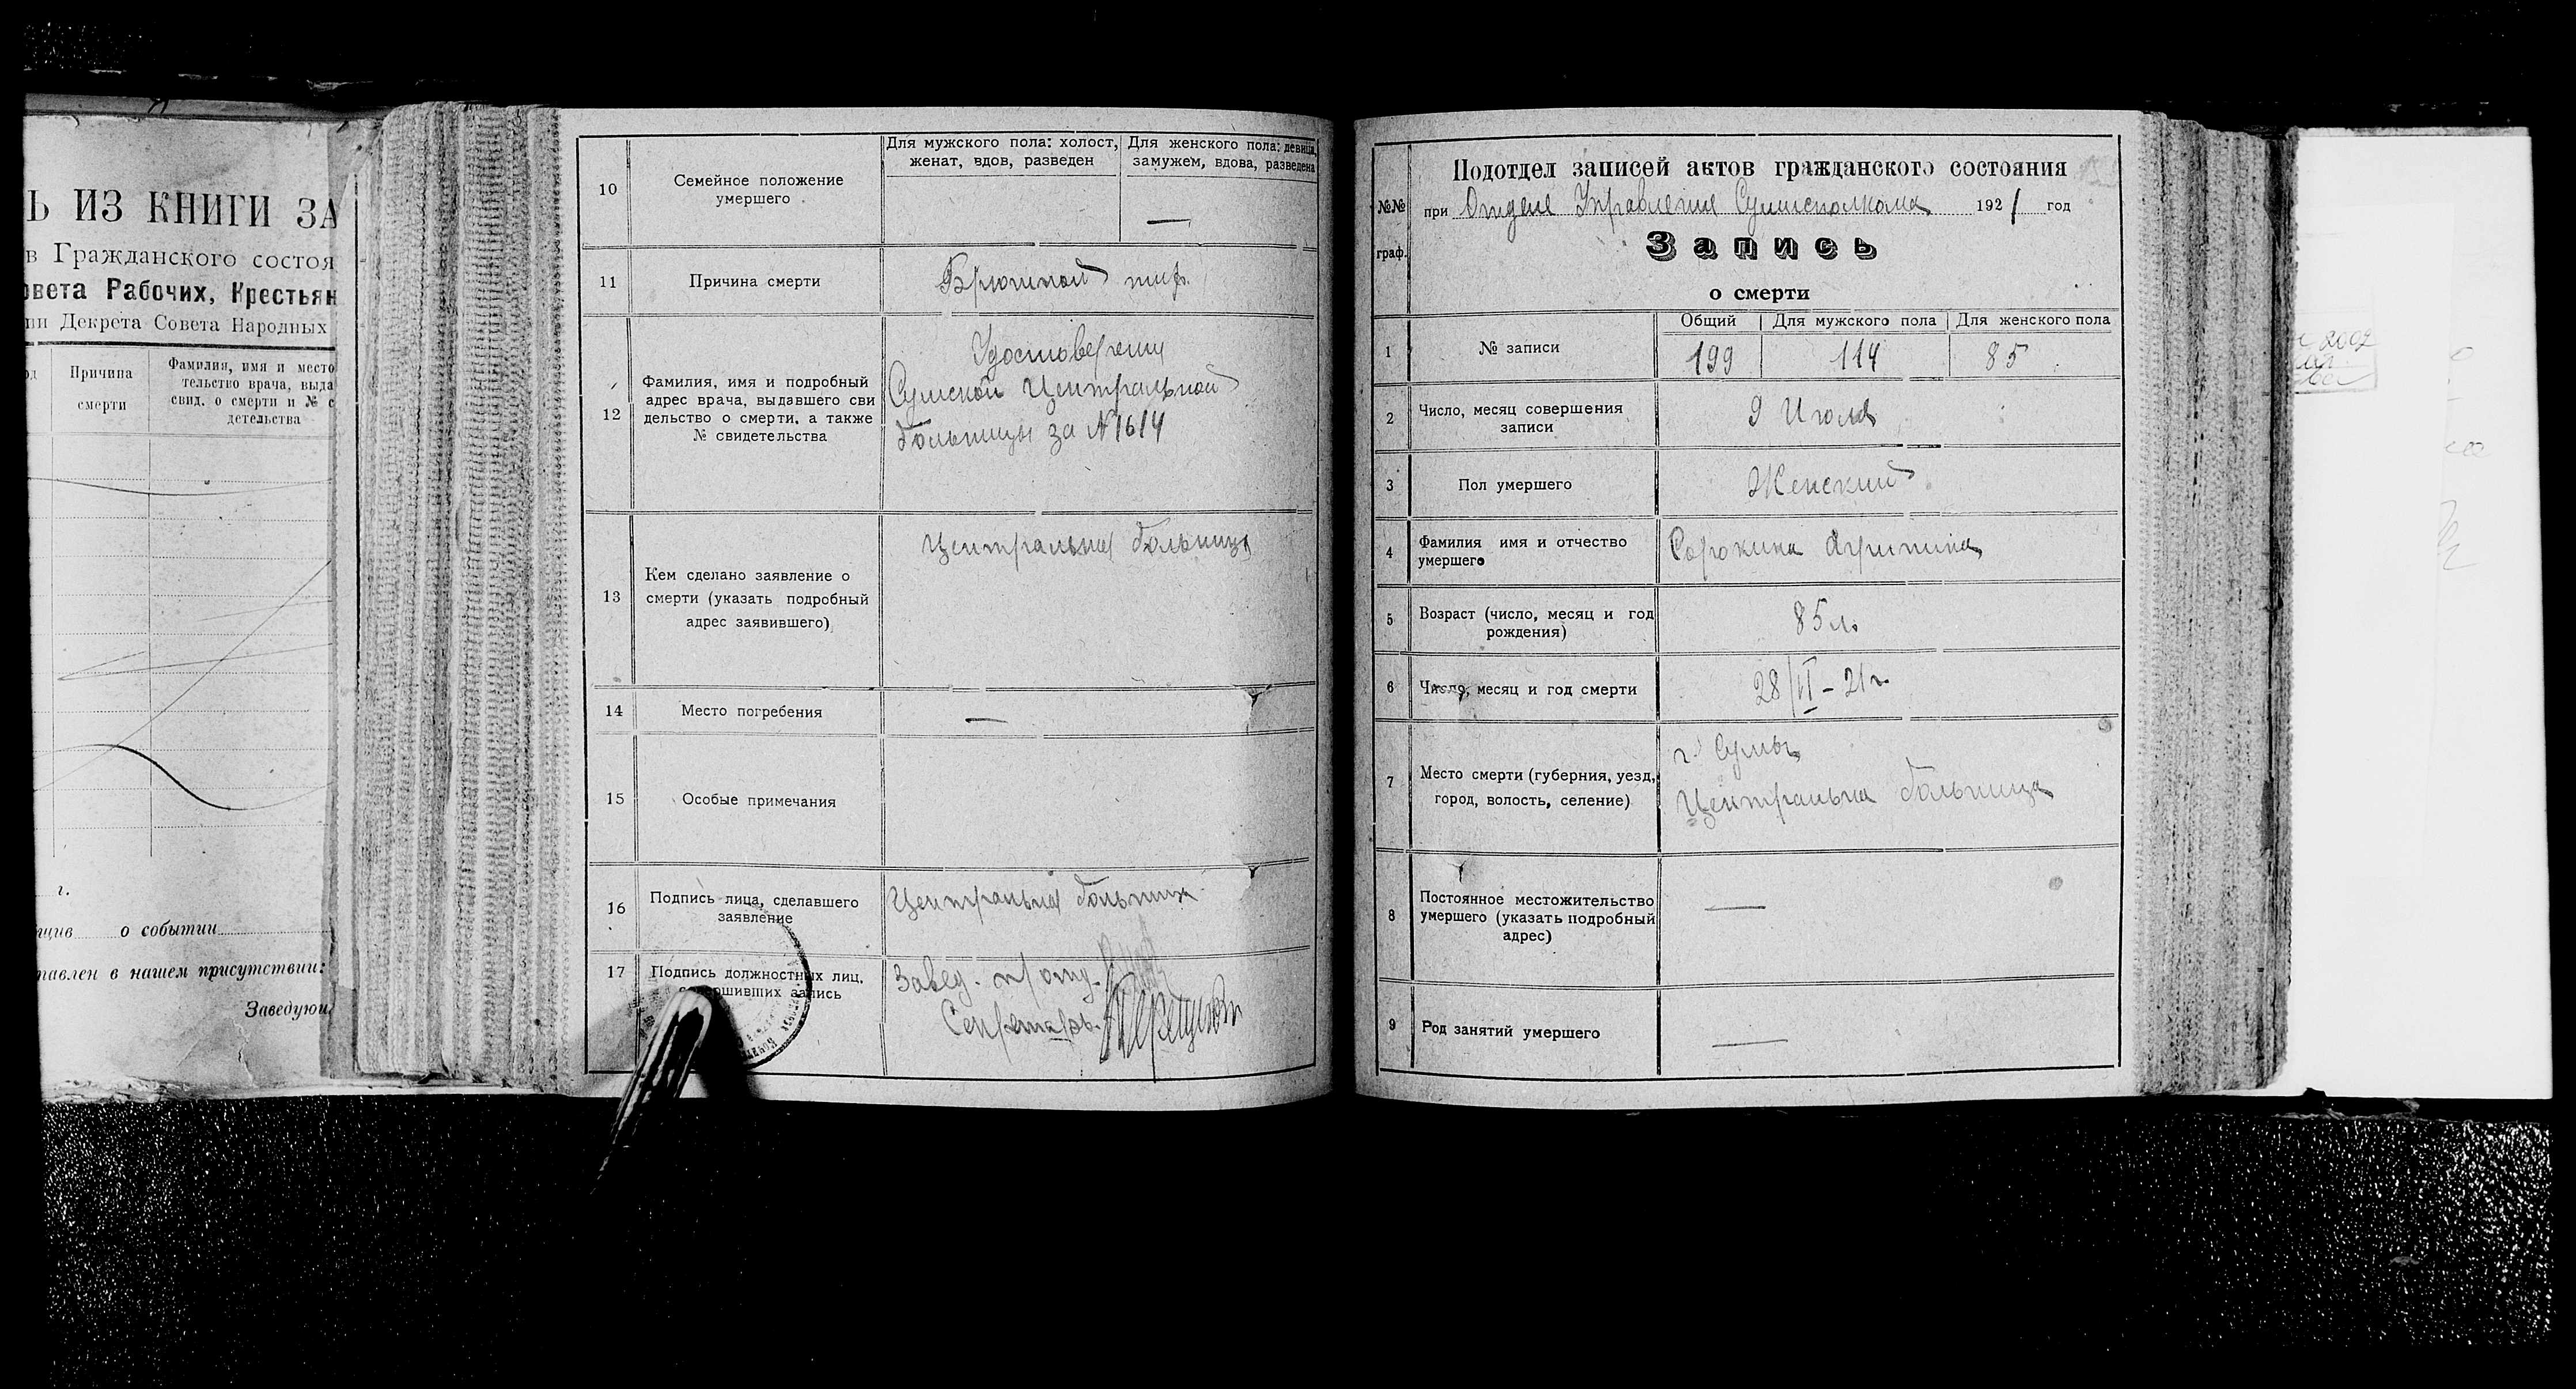 Ь ИЗ КНИГИ ЗА
в Гражданского состоя
овета Рабочих, Крестьян
ии Декрета Совета Народных
Причина смерти
Фамилия, имя и место
тельство врача, выда
свид. о смерти и № с
детельства
г.
о событии
тавлен в нашем присутствии:
Заведую
10
Семейное положение
умершего
Для мужского пола: холост,
женат, вдов, разведен
Для женского пола: девица,
замужем, вдова, разведена
—
11
Причина смерти
Брюшной тиф.
12
Фамилия, имя и подробный
адрес врача, выдавшего сви
дельство о смерти, а также
№ свидетельства
Удостоверению
Сумской Центральной
больницы за №1614
13
Кем сделано заявление о
смерти (указать подробный
адрес заявившего)
Центральна больница
14
Место погребения
—
15
Особые примечания
16
Подпись лица, сделавшего
заявление
Центральна больниц
17
Подпись должностных лиц,
совершивших запись
Завед. п/отд.
Секретарь.
№№
граф.
Подотдел записей актов гражданского состояния
при Отделе Управления Сумисполкома 1921 год
Запись
о смерти
1
№ записи
Общий
Для мужского пола
Для женского пола
199
114
85
2
Число, месяц совершения
записи
9 Июля
3
Пол умершего
Женский
4
Фамилия имя и отчество
умершего
Сорокина Агрипина
5
Возраст (число, месяц и год
рождения)
85 л.
6
Число, месяц и год смерти
28/VI – 21 г.
7
Место смерти (губерния, уезд,
город, волость, селение)
г. Сумы
Центральна больница
8
Постоянное местожительство
умершего (указать подробный
адрес)
—
9
Род занятий умершего
—